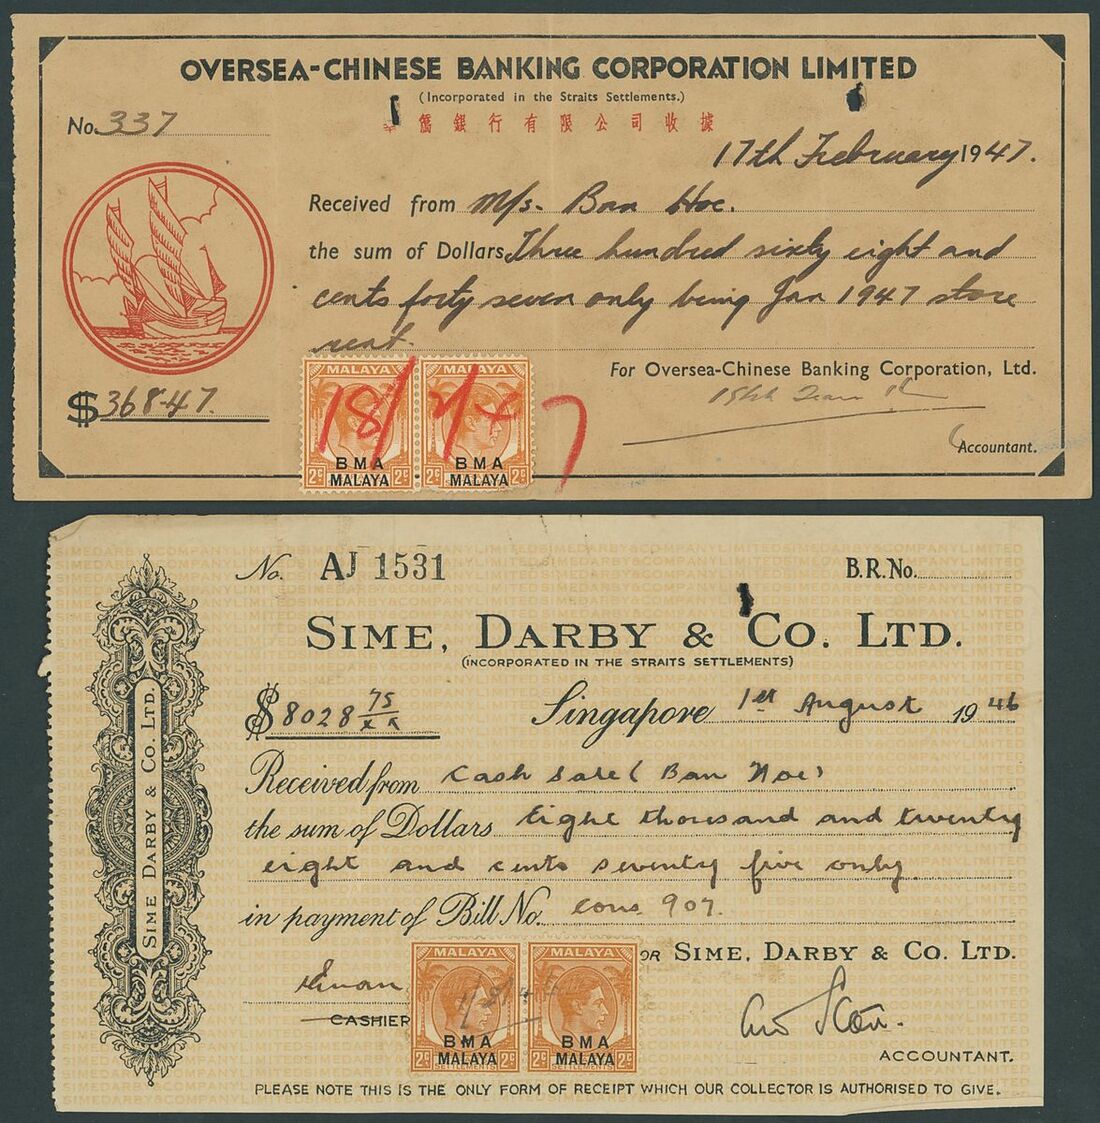 OVERSEA-CHINESE BANKING CORPORATION LIMITED
(Incorporated in the Straits Settlements.)
No. 337
華僑銀行有限公司收據
17th February 1947.
Received from M/s. Ban Hoe.
the sum of Dollars Three hundred sixty eight and
cents forty seven only being Jan 1947 store
rent.
$368-47.
For Oversea-Chinese Banking Corporation, Ltd.
Accountant.
MALAYA MALAYA
18/2/47
BMA BMA
2c MALAYA 2c 2c MALAYA 2c
SIME DARBY & CO. LTD.
No. AJ 1531
B.R.No.
SIME, DARBY & CO. LTD.
(INCORPORATED IN THE STRAITS SETTLEMENTS)
$8028 75/xx
Singapore 1st August 1946
Received from Cash Sale (Ban Hoe)
the sum of Dollars Eight thousand and twenty
eight and cents seventy five only.
in payment of Bill No. cons 907.
OR SIME, DARBY & CO. LTD.
CASHIER
MALAYA MALAYA
BMA BMA
2c MALAYA 2c 2c MALAYA 2c
ACCOUNTANT.
PLEASE NOTE THIS IS THE ONLY FORM OF RECEIPT WHICH OUR COLLECTOR IS AUTHORISED TO GIVE.